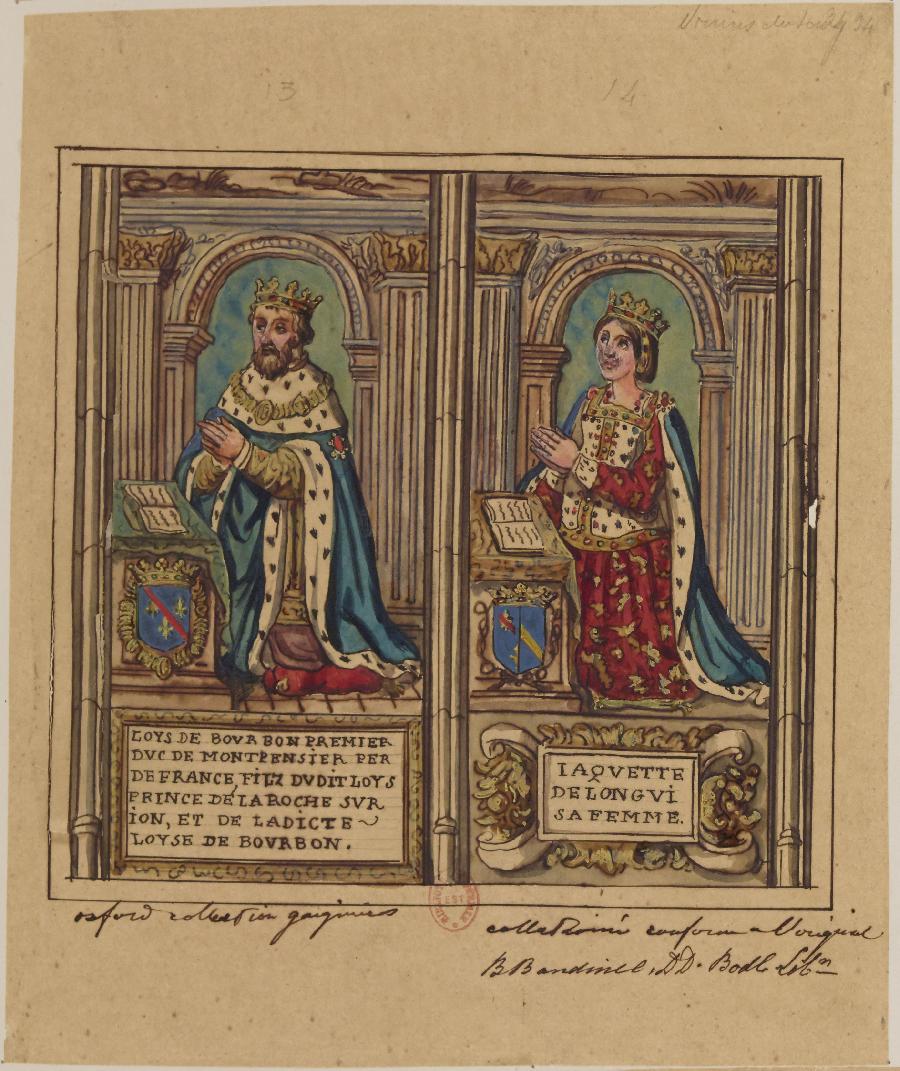 13
14
LOYS DE BOVRBON PREMIER
DVC DE MONTPENSIER PER
DE FRANCE, FILZ DVDIT LOYS
PRINCE DE LA ROCHE SVR
ION, ET DE LADICTE ~
LOYSE DE BOVRBON.
IAQVETTE
DE LONGVI
SA FEMME.
EST
oxford collection gaignieres
collationné conforme a l'original
B Bandinel, D.D. Bodl. Libn